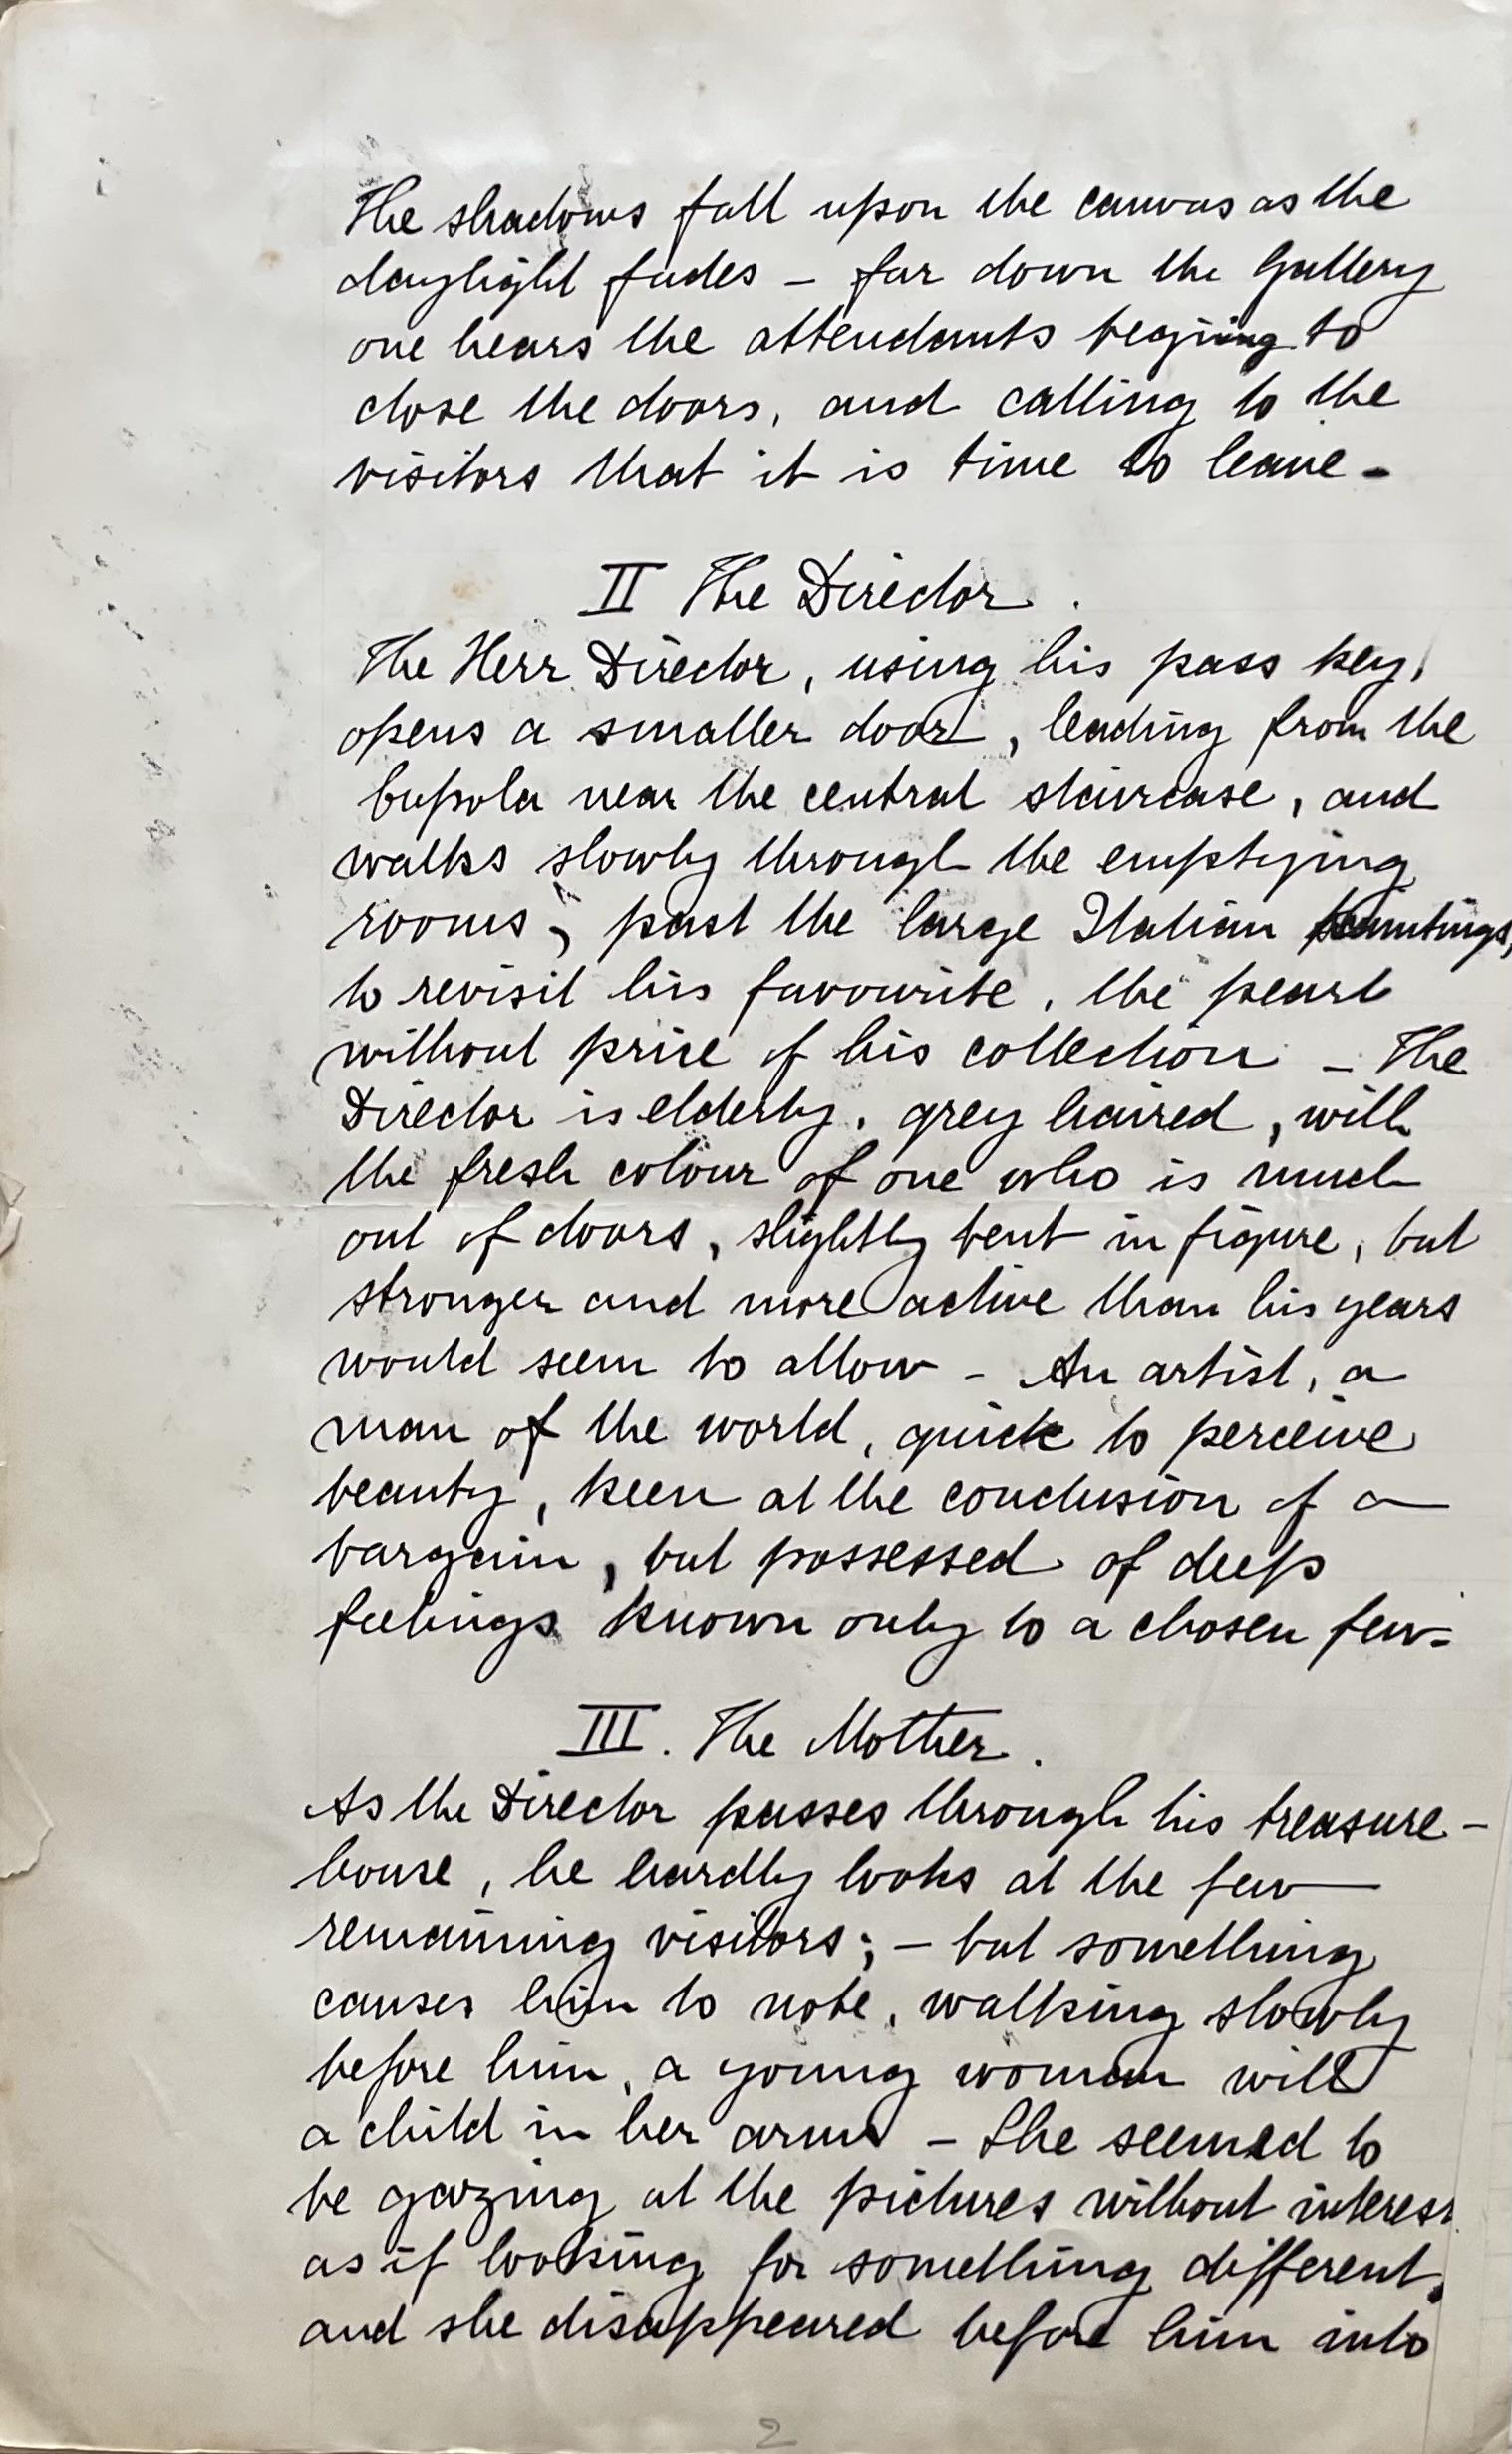 The shadows fall upon the canvas as the
daylight fades – far down the Gallery
one hears the attendants begining to
close the doors, and calling to the
visitors that it is time to leave –
II The Director.
The Herr Director, using his pass key,
opens a smaller door, leading from the
Cupola near the central staircase, and
walks slowly through the emptying
rooms, past the large Italian paintings,
to revisit his favourite, the pearl
without price of his collection – The
Director is elderly, grey haired, with
the fresh colour of one who is much
out of doors, slightly bent in figure, but
stronger and more active than his years
would seem to allow – An artist, a
man of the world, quick to perceive
beauty, keen at the conclusion of a
bargain, but possessed of deep
feelings known only to a chosen few –
III. The Mother.
As the Director passes through his treasure –
house, he hardly looks at the few
remaining visitors; – but something
causes him to note, walking slowly
before him, a young woman with
a child in her arms – She seemed to
be gazing at the pictures without interest
as if looking for something different,
and she disappeared before him into
2